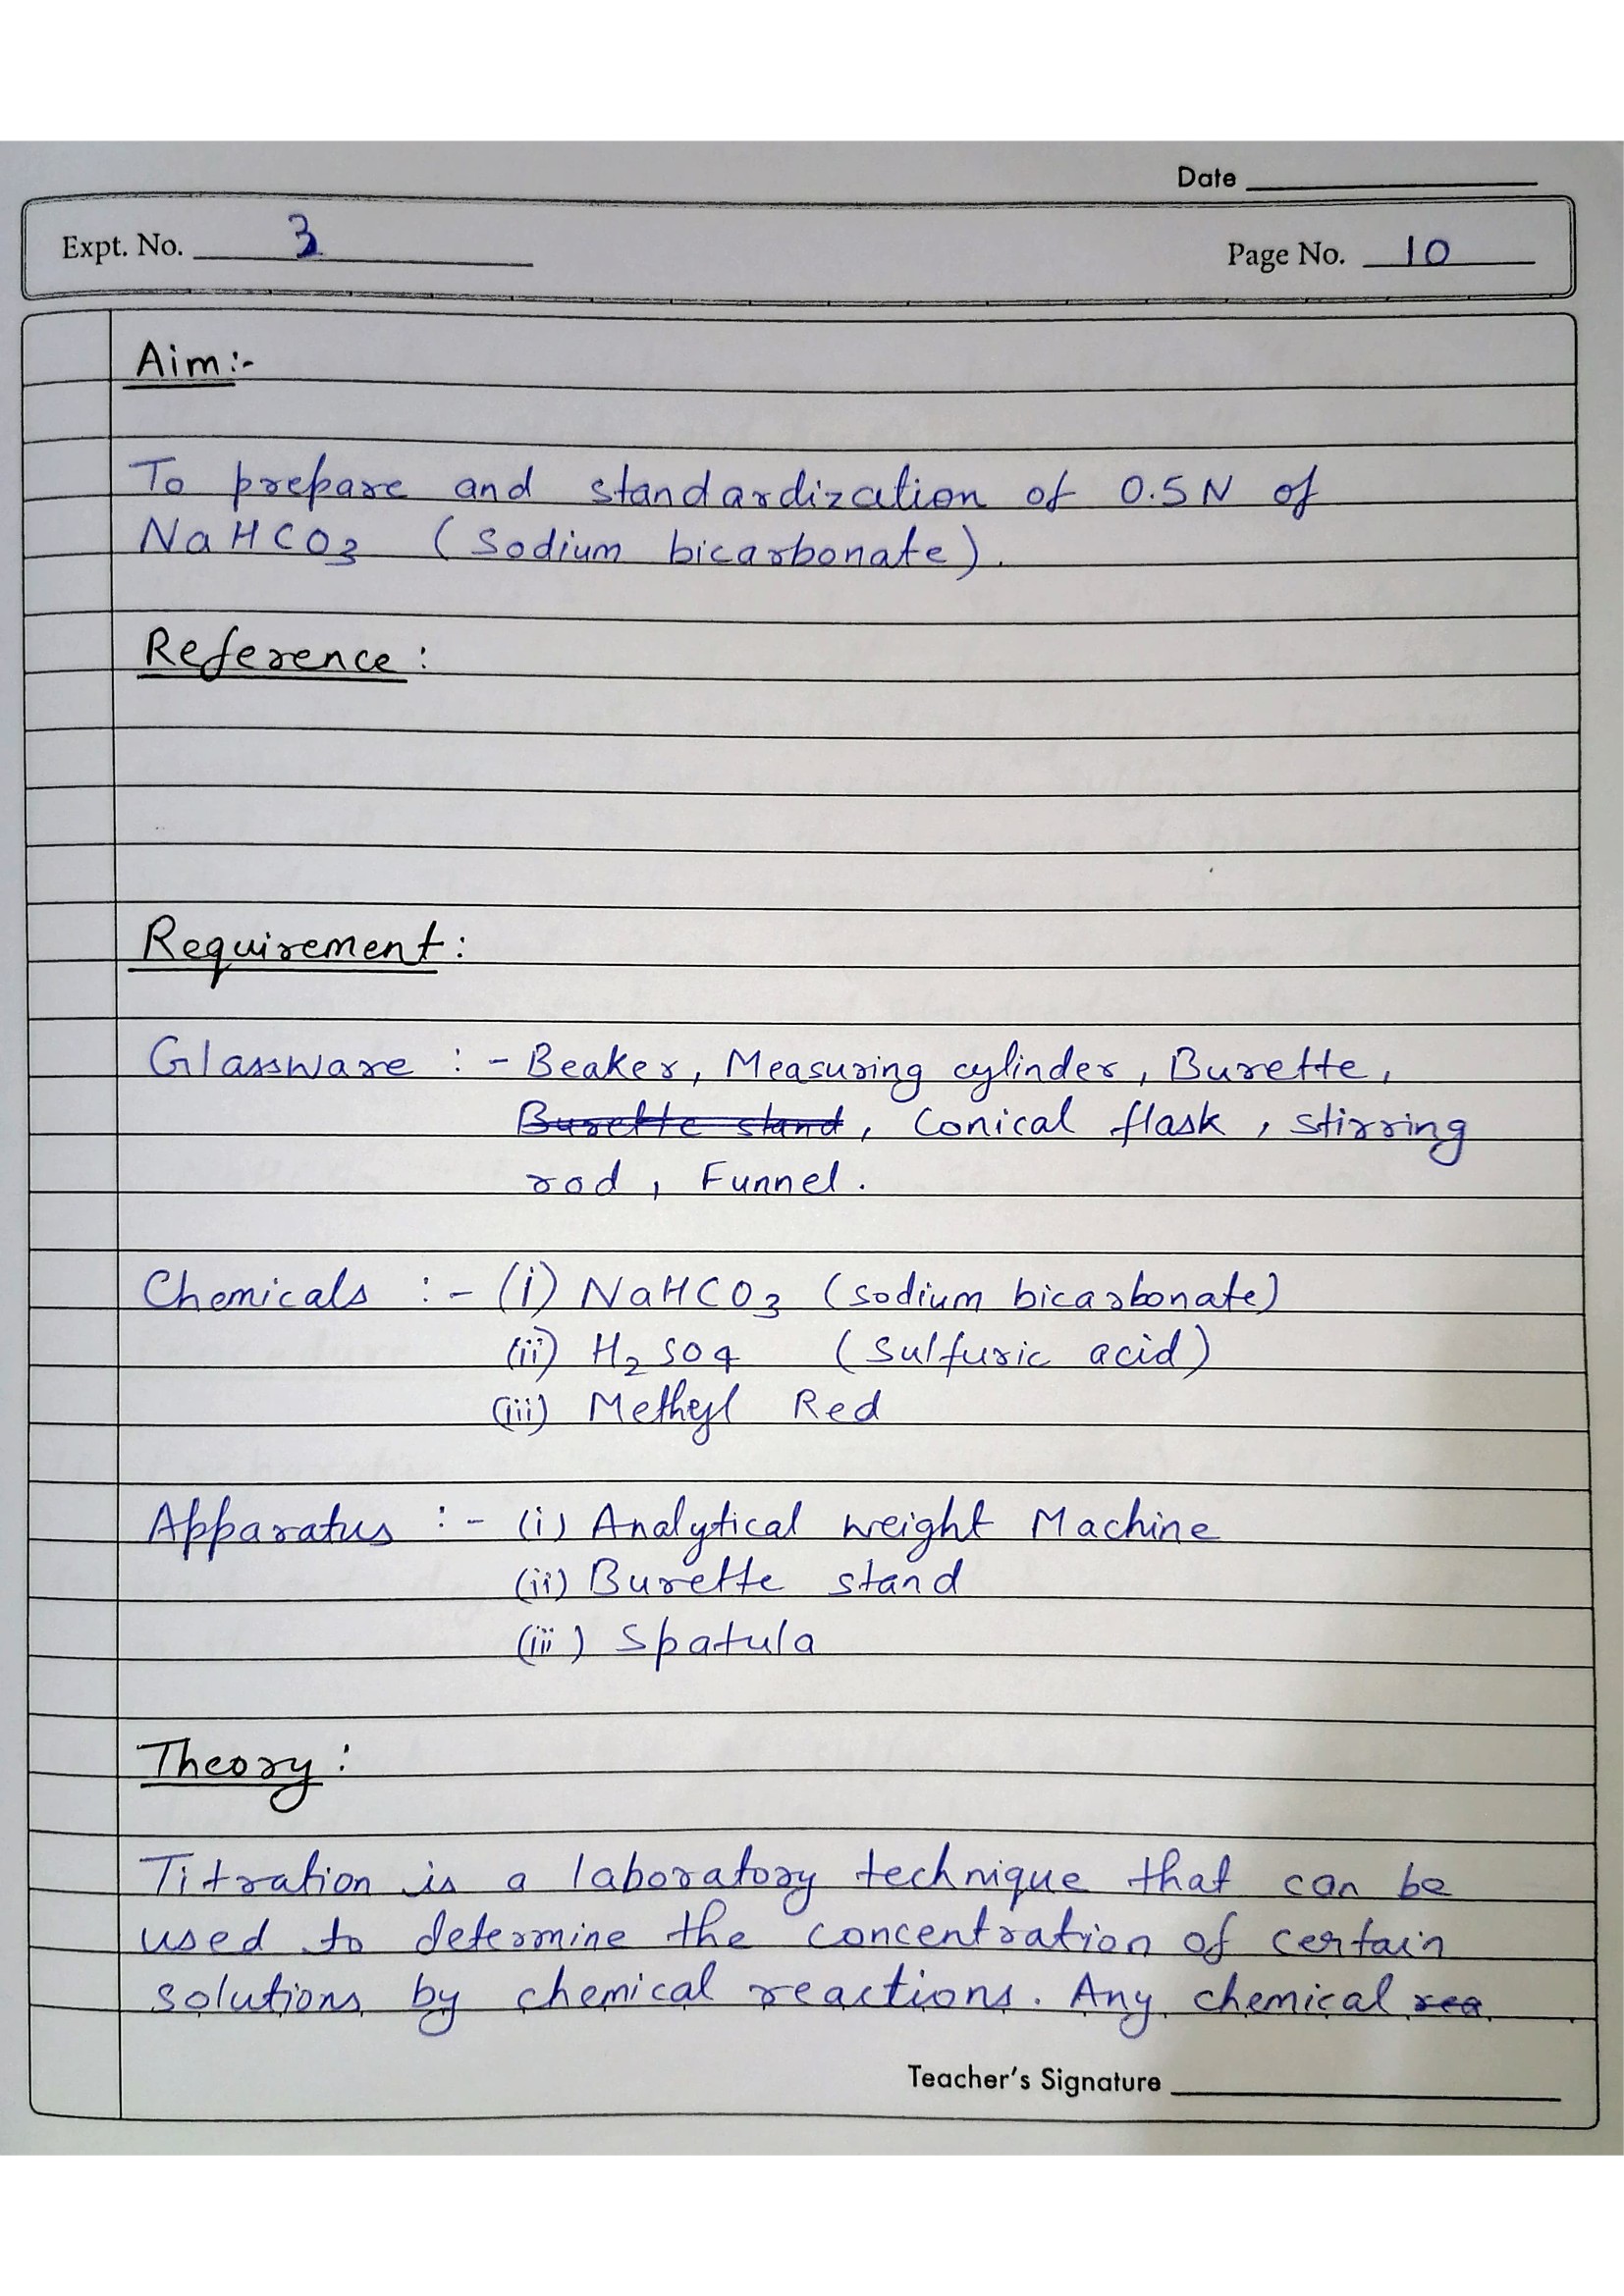 Date
Expt. No. 3
Page No. 10
Aim:-
To prepare and standardization of 0.5 N of
NaHCO3 (Sodium bicarbonate).
Reference :
Requirement :
Glassware :- Beaker, Measuring cylinder, Burette,
Burette stand, Conical flask, stirring
rod, Funnel.
Chemicals :- (i) NaHCO3 (sodium bicarbonate)
(ii) H2SO4 (Sulfuric acid)
(iii) Methyl Red
Apparatus :- (i) Analytical weight Machine
(ii) Burette stand
(iii) Spatula
Theory :
Titration is a laboratory technique that can be
used to determine the concentration of certain
solutions by chemical reactions. Any chemical rea
Teacher's Signature